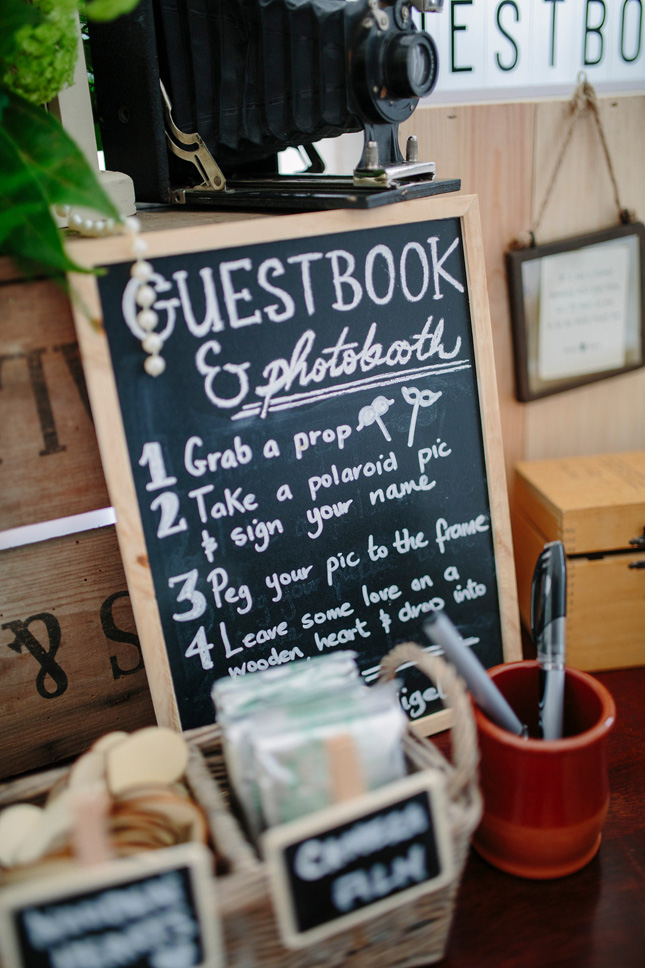 GUESTBOOK
& photobooth
1 Grab a prop
2 Take a polaroid pic
& sign your name
3 Peg your pic to the frame
4 Leave some love on a
wooden heart & drop into
CAMERA
FILM
WOODEN
HEARTS